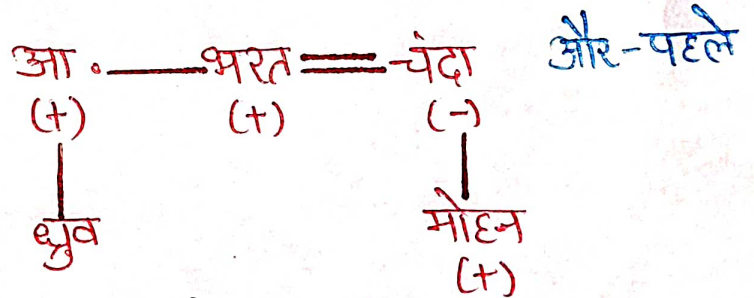 आ. भरत चंदा और-पहले
(+) (+) (-)
ध्रुव मोहन
(+)